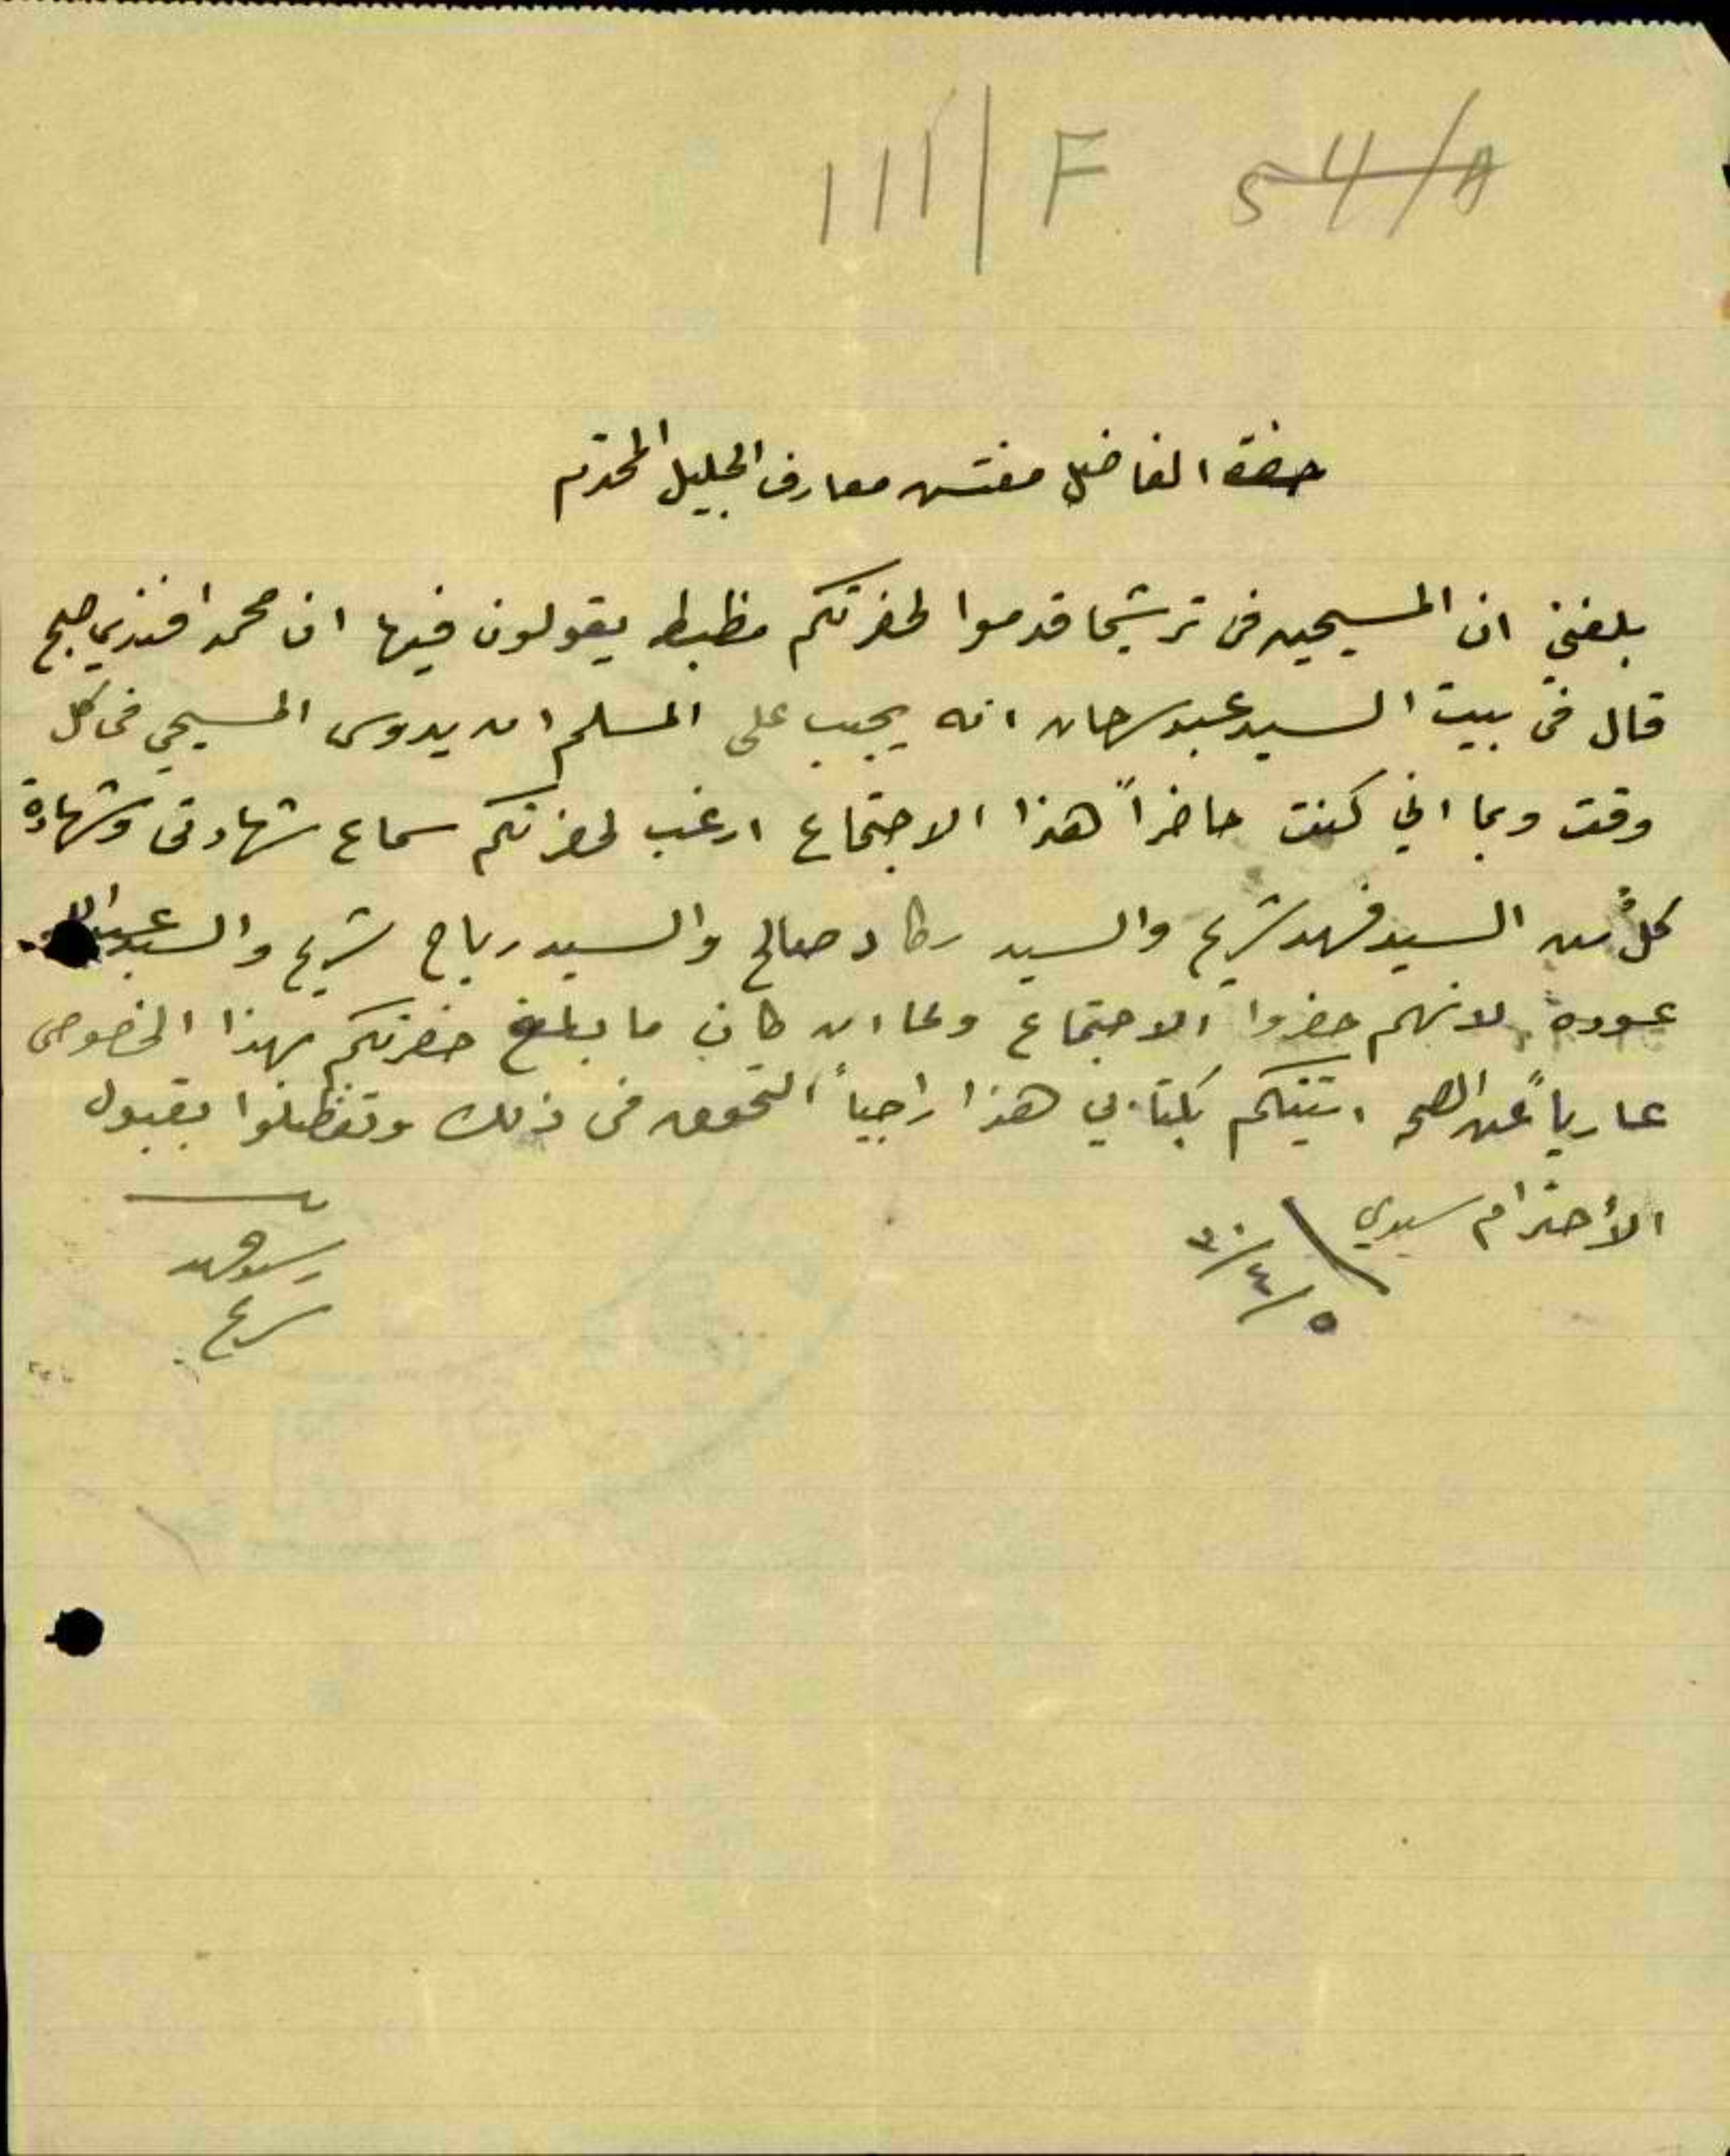 111/F 54/A
حضرة الفاضل مفتش معارف الجليل المحترم
بلغني ان المسيحيين في ترشيحا قدموا لحضرتكم مظبطه يقولون فيها ان محمد افندي
قال في بيت السيد عبد سرحان انه يجب على المسلم ان يدوس المسيحي في كل
وقت وبما اني كنت حاضراً هذا الاجتماع ارغب لحضرتكم سماع شهادتي وشهادة
كلٌ من السيد فهد شريح والسيد صالح والسيد رباح شريح والسيد
عوده لانهم حضروا الاجتماع ولما ان كان ما بلغ حضرتكم بهذا الخصوص
عارياً عن الصحه اتيتكم بكتابي هذا راجياً التحقق في ذلك وتفظلوا بقبول
الأحترام سيدي
٥/٤/٣٠